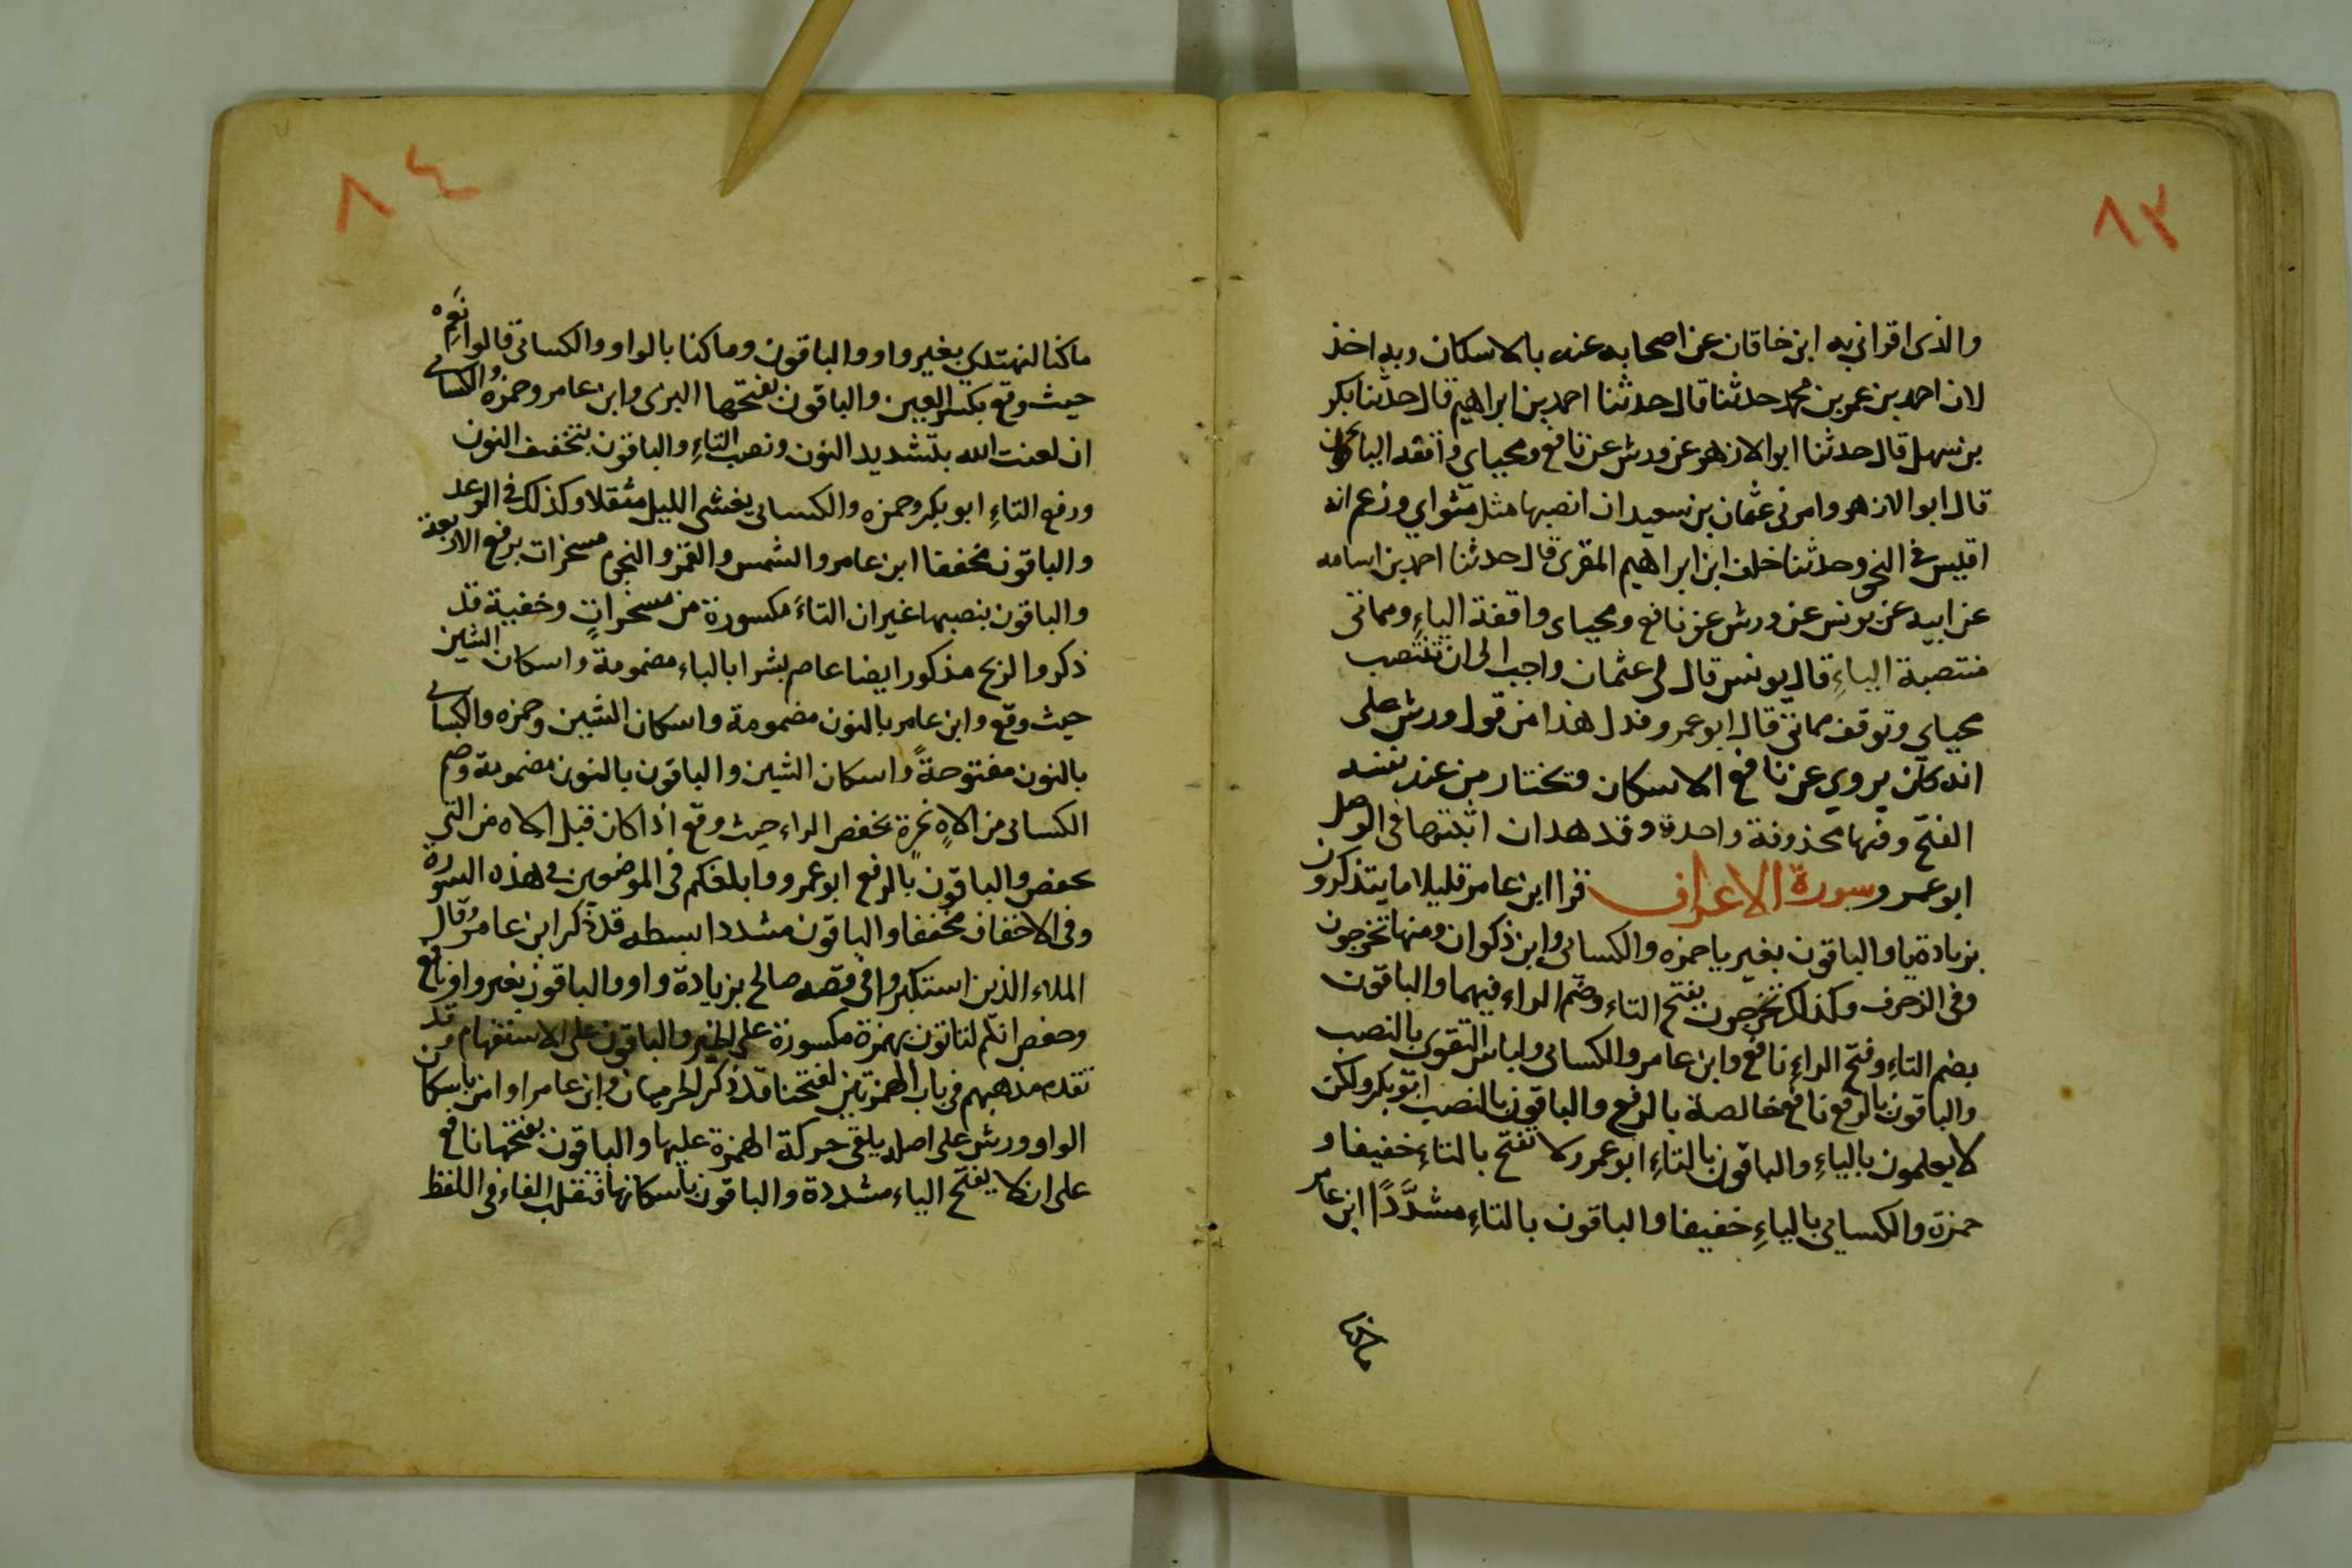 ٨٣
والذى اقرانى به ابن خاقان عن اصحابه عنه بالاسكان وبه اخذ
لان احمد بن عمر بن محمد حدثنا قال حدثنا احمد بن ابراهيم قال حدثنا بكر
بن سهل قال حدثنا ابو الازهر عن ورش عن نافع ومحياي واقفه الياء
قال ابو الازهر وامرنى عثمان بن سعيد ان انصبها مثل مثواي وزعم انه
اقيس فى النحو وحدثنا خلف ابن ابراهيم المقرى قال حدثنا احمد بن اسامه
عن ابيه عن يونس عن ورش عن نافع ومحياى واقفة الياءِ ومماتى
منتصبة الياءِ قال يونس قال لى عثمان واجب الى ان تنتصب
محياي وتوقف مماتى قال ابو عمرو فدل هذا من قول ورش على
انه كان يروي عن نافع الاسكان وتختار من عند نفسه
الفتح وفيها محذوفة واحدة وقد هدان اثبتها فى الوصل
ابو عمرو سورة الاعراف قرا ابن عامر قليلا ما يتذكرون
بزيادة يا والباقون بغير يا حمزه والكسائى وابن ذكوان ومنها تخرجون
وفى الزخرف وكذلك تخرجون بفتح التاء وضم الراء فيهما والباقون
بضم التاءِ وفتح الراءِ نافع وابن عامر والكسائى ولباس التقوى بالنصب
والباقون بالرفع نافع خالصة بالرفع والباقون بالنصب ابو بكر ولكن
لا يعلمون بالياءِ والباقون بالتاءِ ابو عمرو لا تفتح بالتاءِ خفيفا و
حمزة والكسائى بالياءِ خفيفا والباقون بالتاءِ مشدَّدًا ابن عامر
٨٤
ما كنا لنهتدي بغير واو والباقون وما كنا بالواو والكسائى قالوا نَعِم
حيث وقع بكسر العين والباقون بفتحها البزى وابن عامر وحمزه والكسائى
ان لعنت الله بتشديد النون ونصب التاءِ والباقون بتخفيف النون
ورفع التاءِ ابو بكر وحمزه والكسائى يغشى الليل مثقلا وكذلك فى الرعد
والباقون مخففا ابن عامر والشمس والقمر والنجوم مسخرات برفع الاربعة
والباقون بنصبها غير ان التاءَ مكسورة من مسخراتٍ وخفية قد
ذكر والريح مذكور ايضا عاصم بشرا بالباء مضمومة واسكان الشين
حيث وقع وابن عامر بالنون مضمومة واسكان الشين وحمزه والكسائى
بالنون مفتوحةً واسكان الشين والباقون بالنون مضمومة وضم
الكسائى من الاهٍ غيرِهِ بخفض الراء حيث وقع اذا كان قبل الاه من التى
تخفض والباقون بالرفع ابو عمرو وابلغكم فى الموضعين فى هذه السورة
وفى الاحقاف مخففا والباقون مشددا بسطه قد ذكر ابن عامر وقال
الملاء الذين استكبروا فى قصه صالح بزيادة واو والباقون بغير واو نافع
وحفص انكم لتاتون بهمزة مكسورة على الخبر والباقون على الاستفهام وقد
تقدم مذهبهم فى باب الهمزتين لفتحنا قد ذكر الحرميان وابن عامر او امن باسكان
الواو وورش على اصله يلقى حركة الهمزة عليها والباقون بفتحها نافع
على ان لا بفتح الياء مشددة والباقون باسكانها فتنقلب الفاء فى اللفظ